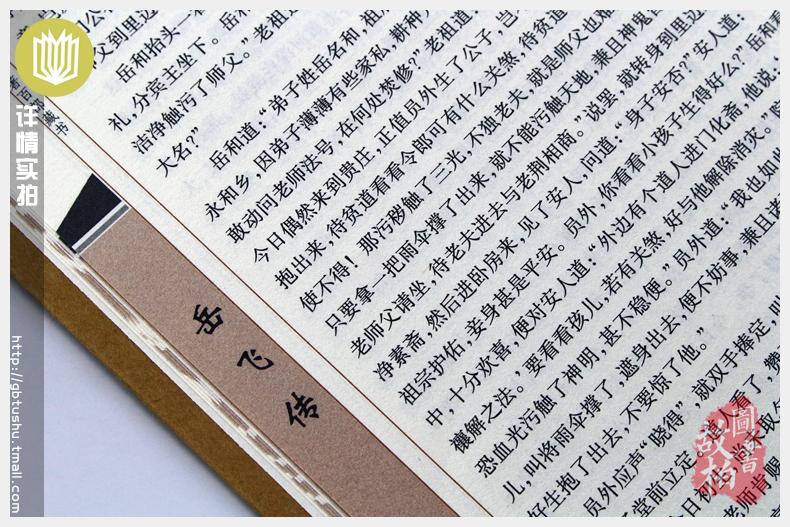 详情实拍
http://gbtushu.tmall.com
岳飞传
岳和抬头一看
礼，分宾主坐下。岳和
洁净触污了师父。”老祖道：
大名？”
岳和道：“弟子姓岳名和，祖
永和乡，因弟子薄薄有些家私，耕种
敢动问老师法号，在何处焚修？”老祖道：
今日偶然来到贵庄，正值员外生了公子，岂
抱出来，待贫道看看令郎可有什么关煞，待贫道
使不得！那污秽触了三光，不独老夫，就是师父也难
只要拿一把雨伞撑了出来，就不能污触天地，兼且神鬼
老师父请坐，待老夫进去与老荆相商。”说罢，就转身到里边
净素斋，然后进卧房来，见了安人，问道：“身子安否？”安人道：“
祖宗护佑，妾身甚是平安。员外，你看看小孩子生得好么？”岳和看
中，十分欢喜，便对安人道：“外边有个道人进门化斋，他说：“
禳解之法。’要看看孩儿，若有关煞，好与他解除消灾。”
恐血光污触了神明，甚不稳便。”员外道：“我也如此
儿，叫将雨伞撑了，遮身出去，便不妨事，兼且诸
好生抱了出去，不要惊了他。”
员外应声“晓得”，就双手捧定，叫
堂前立定。道人看了，赞
今日初生，尚未取名
老师肯赐
故柏
圖書